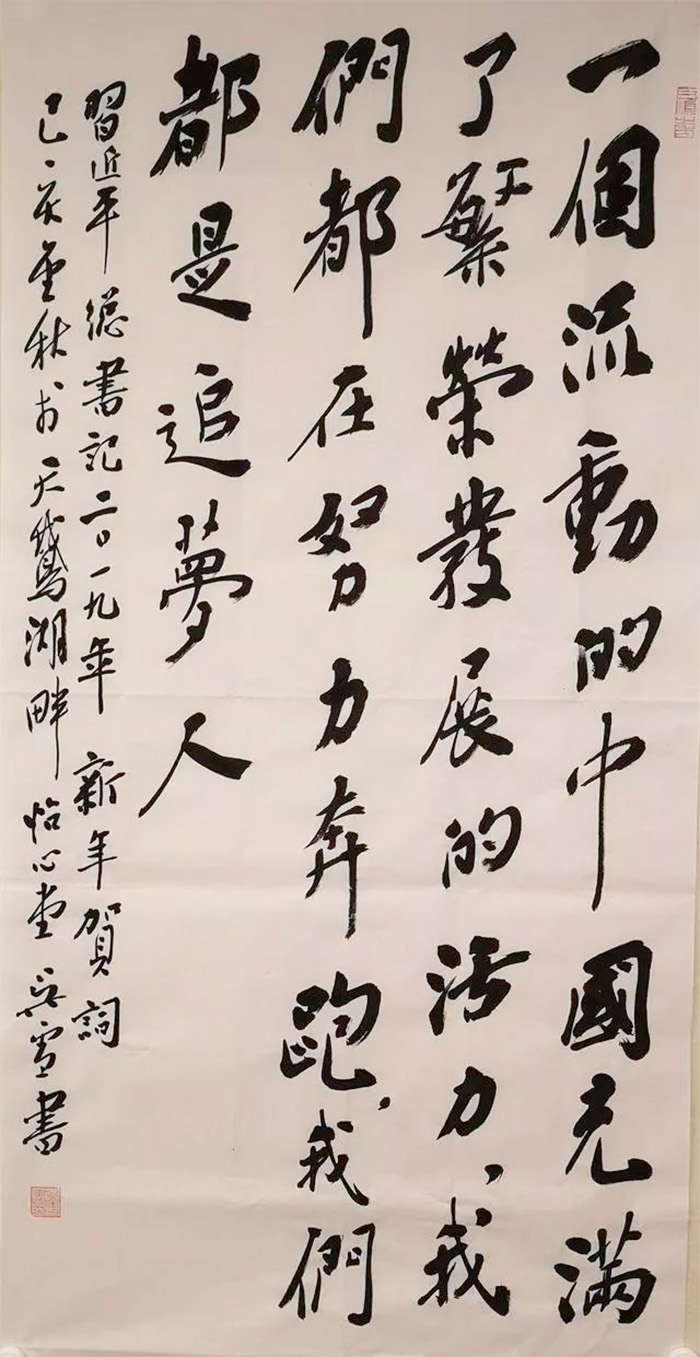 一個流動的中國充滿
了繁榮發展的活力、我
們都在努力奔跑，我們
都是追夢人
習近平總書記二〇一九年新年賀詞
己亥金秋於天鵝湖畔怡心堂吳雪書